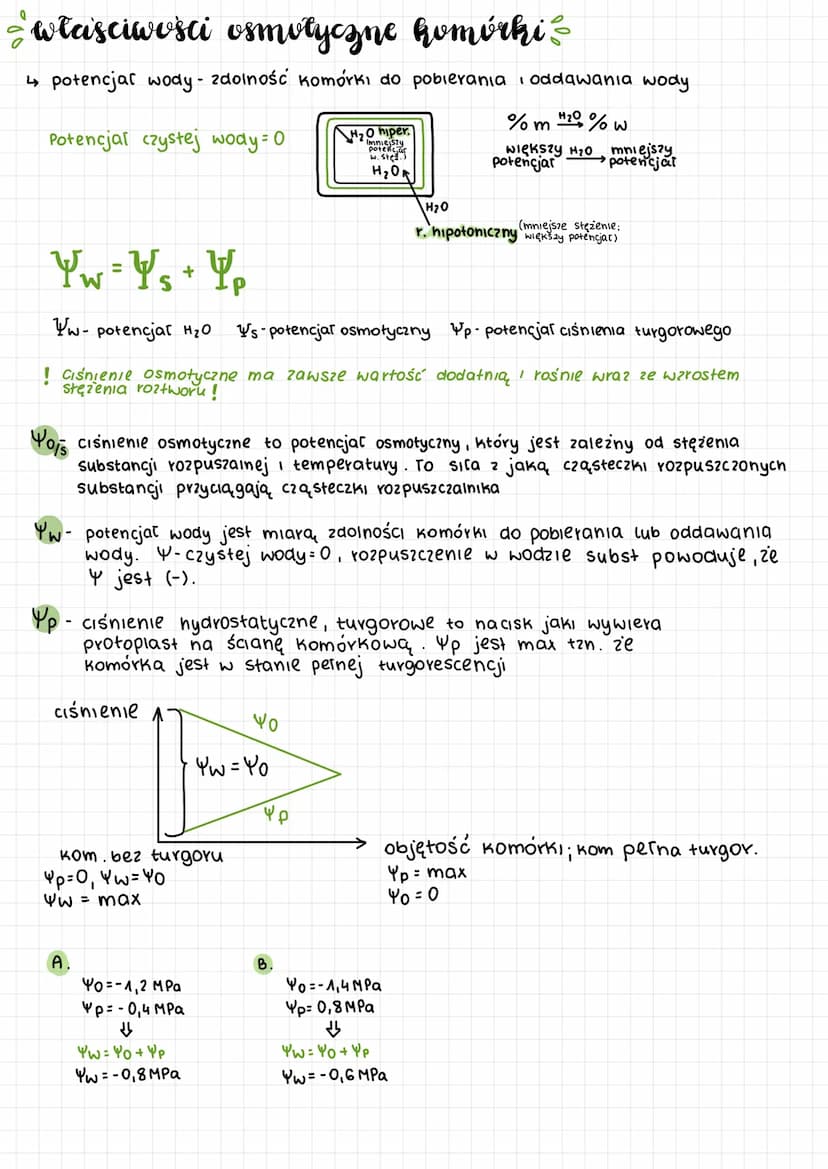 właściwości osmotyczne komórki
↳ potencjał wody - zdolność komórki do pobierania i oddawania wody
Potencjał czystej wody = 0
H₂O hiper.
(mniejszy
potencjał
w. stęż.)
H₂O
H₂O
r. hipotoniczny (mniejsze stężenie;
większy potencjał)
% m H₂O → % w
większy potencjał H₂O → mniejszy potencjał
Ψw = Ψs + Ψp
Ψw - potencjał H₂O Ψs - potencjał osmotyczny Ψp - potencjał ciśnienia turgorowego
! Ciśnienie osmotyczne ma zawsze wartość dodatnią i rośnie wraz ze wzrostem
stężenia roztworu !
Ψo/s - ciśnienie osmotyczne to potencjał osmotyczny, który jest zależny od stężenia
substancji rozpuszalnej i temperatury. To siła z jaką cząsteczki rozpuszczonych
substancji przyciągają cząsteczki rozpuszczalnika
Ψw - potencjał wody jest miarą zdolności komórki do pobierania lub oddawania
wody. Ψ - czystej wody = 0, rozpuszczenie w wodzie subst powoduje, że
Ψ jest (-).
Ψp - ciśnienie hydrostatyczne, turgorowe to nacisk jaki wywiera
protoplast na ścianę komórkową. Ψp jest max tzn. że
komórka jest w stanie pełnej turgorescencji
ciśnienie
Ψo
Ψw = Ψo
Ψp
kom. bez turgoru
Ψp=0, Ψw=Ψo
Ψw = max
objętość komórki; kom pełna turgor.
Ψp = max
Ψo = 0
A.
Ψo = -1,2 MPa
Ψp = -0,4 MPa
⇓
Ψw = Ψo + Ψp
Ψw = -0,8 MPa
B.
Ψo = -1,4 MPa
Ψp = 0,8 MPa
⇓
Ψw = Ψo + Ψp
Ψw = -0,6 MPa